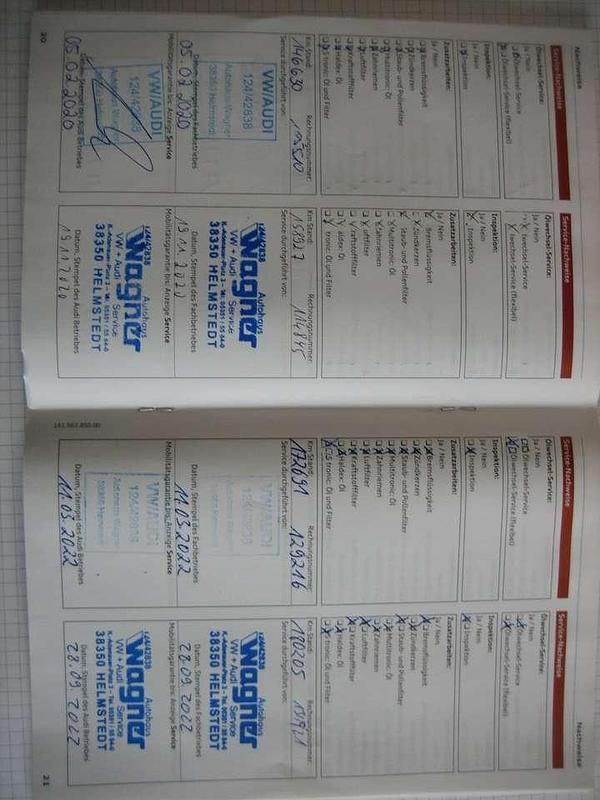 Nachweise
Service-Nachweise
Ölwechsel-Service:
Ja / Nein
Ölwechsel-Service
Ölwechsel-Service (flexibel)
Inspektion:
Ja / Nein
Inspektion
Zusatzarbeiten:
Ja / Nein
Bremsflüssigkeit
Zündkerzen
Staub- und Pollenfilter
Multitronic Öl
Zahnriemen
Luftfilter
Kraftstofffilter
Haldex Öl
S tronic Öl und Filter
Km Stand: Rechnungsnummer:
146630
Service durchgeführt von:
VW/AUDI
124/42838
Autohaus Wagner
38350 Helmstedt
Datum, Stempel des Fachbetriebes
05.02.2020
Mobilitätsgarantie bis: Anzeige Service
VW/AUDI
124/42838
Datum, Stempel des Audi Betriebes
05.02.2020
20
Service-Nachweise
Ölwechsel-Service:
Ja / Nein
lwechsel-Service
lwechsel-Service (flexibel)
Inspektion:
Ja / Nein
Inspektion
Zusatzarbeiten:
Ja / Nein
Bremsflüssigkeit
Zündkerzen
Staub- und Pollenfilter
Multitronic Öl
Zahnriemen
uftfilter
raftstofffilter
aldex Öl
tronic Öl und Filter
Km Stand: Rechnungsnummer:
114845
Service durchgeführt von:
124/42838
Autohaus
Wagner
VW + Audi Service
38350 HELMSTEDT
Datum, Stempel des Fachbetriebes
19.11.2020
Mobilitätsgarantie bis: Anzeige Service
124/42838
Autohaus
Wagner
VW + Audi Service
38350 HELMSTEDT
Datum, Stempel des Audi Betriebes
19.11.2020
161.563.850.00
Service-Nachweise
Ölwechsel-Service:
Ja / Nein
Ölwechsel-Service
Ölwechsel-Service (flexibel)
Inspektion:
Ja / Nein
Inspektion
Zusatzarbeiten:
Ja / Nein
Bremsflüssigkeit
Zündkerzen
Staub- und Pollenfilter
Multitronic Öl
Zahnriemen
Luftfilter
Kraftstofffilter
Haldex Öl
S tronic Öl und Filter
Km Stand: Rechnungsnummer:
172691 129216
Service durchgeführt von:
VW/AUDI
Datum, Stempel des Fachbetriebes
11.03.2022
Mobilitätsgarantie bis: Anzeige Service
VW/AUDI
124/42838
Autohaus Wagner
Datum, Stempel des Audi Betriebes
11.03.2022
Nachweise
Service-Nachweise
Ölwechsel-Service:
Ja / Nein
Ölwechsel-Service
Ölwechsel-Service (flexibel)
Inspektion:
Ja / Nein
Inspektion
Zusatzarbeiten:
Ja / Nein
Bremsflüssigkeit
Zündkerzen
Staub- und Pollenfilter
Multitronic Öl
Zahnriemen
Luftfilter
Kraftstofffilter
Haldex Öl
S tronic Öl und Filter
Km Stand: Rechnungsnummer:
180205
Service durchgeführt von:
124/42838
Autohaus
Wagner
VW + Audi Service
38350 HELMSTEDT
Datum, Stempel des Fachbetriebes
28.09.2022
Mobilitätsgarantie bis: Anzeige Service
124/42838
Autohaus
Wagner
VW + Audi Service
38350 HELMSTEDT
Datum, Stempel des Audi Betriebes
28.09.2022
21